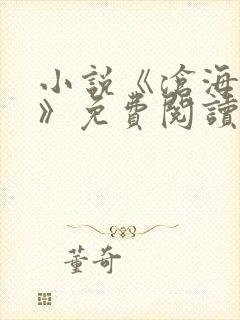 小說《滄海
》免費閱讀
董奇